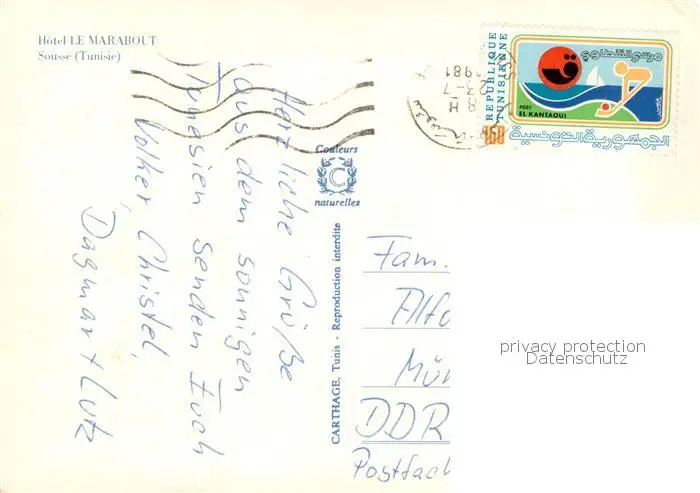 Hôtel LE MARABOUT
Sousse (Tunisie)
Herzliche Grüße
aus dem sonnigen
Tunesien senden Euch
Volker, Christel,
Dagmar + Lutz
Couleurs
C
naturelles
CARTHAGE, Tunis - Reproduction interdite
REPUBLIQUE
TUNISIENNE
مرسى القنطاوي
PORT
EL KANTAOUI
الجمهورية التونسية
1981
23-7
8 H
Fam.
Alfo
Mün
DDR
Postfach
privacy protection
Datenschutz